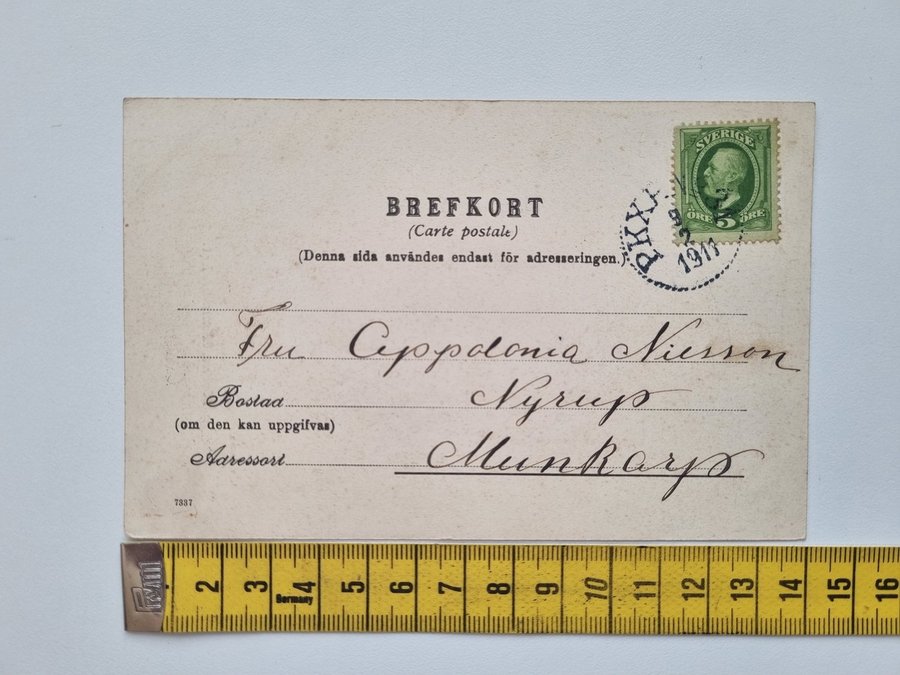 SVERIGE
ÖRE 5 ÖRE
PKXP
1911
BREFKORT
(Carte postale)
(Denna sida användes endast för adresseringen.)
Fru Appolonia Nilsson
Bostad Nyrup
(om den kan uppgifvas)
Adressort Munkarp
7337
2 3 4 5 6 7 8 9 10 11 12 13 14 15 16
Germany